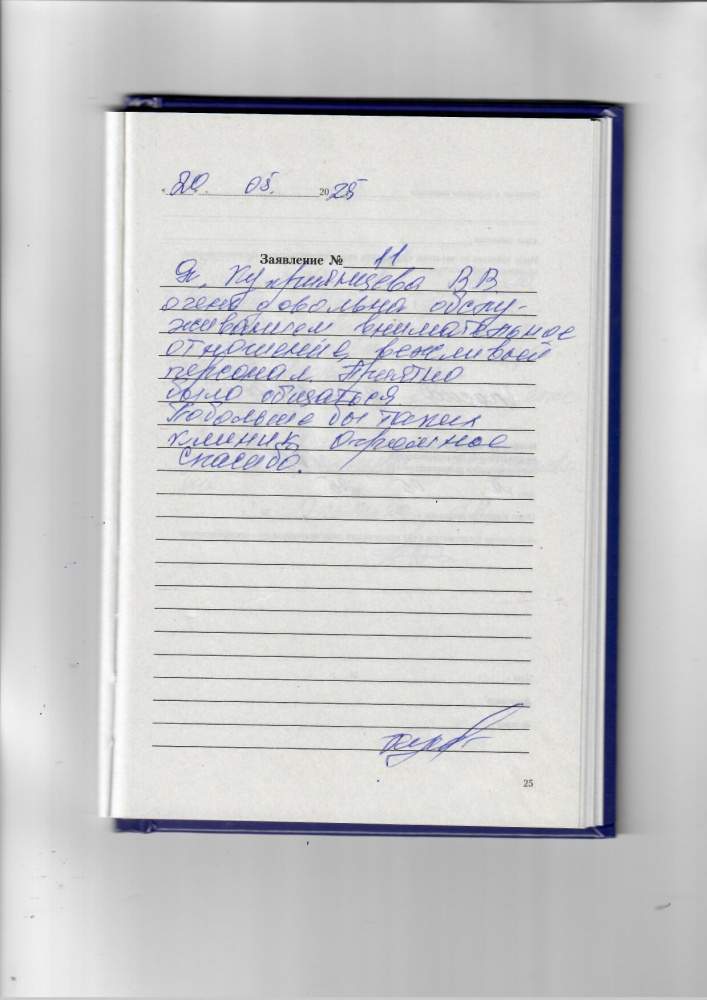 « 20. 05. 2025
Заявление № 11
Я, Куприянцева В В
очень довольна обслу-
живанием внимательное
отношение, вежливый
персонал. Приятно
было общаться.
Побольше бы таких
клиник. Огромное
Спасибо.
25